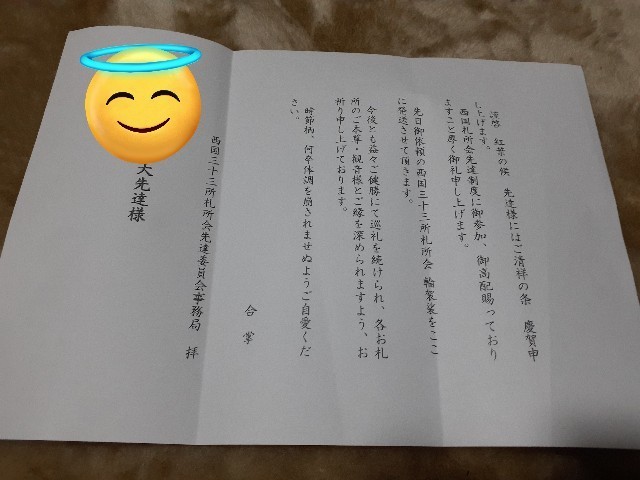 謹啓　紅葉の候　先達様にはご清祥の条　慶賀申
し上げます。
西国札所会先達制度に御参加、御高配賜っており
ますこと厚く御礼申し上げます。
先日御依頼の西国三十三所札所会 輪袈裟をここ
に発送させて頂きます。
今後とも益々ご健勝にて巡礼を続けられ、各お札
所のご本尊・観音様とご縁を深められますよう、お
祈り申し上げております。
時節柄、何卒体調を崩されませぬようご自愛くだ
さい。
合掌
西国三十三所札所会先達委員会事務局　拝
大先達様